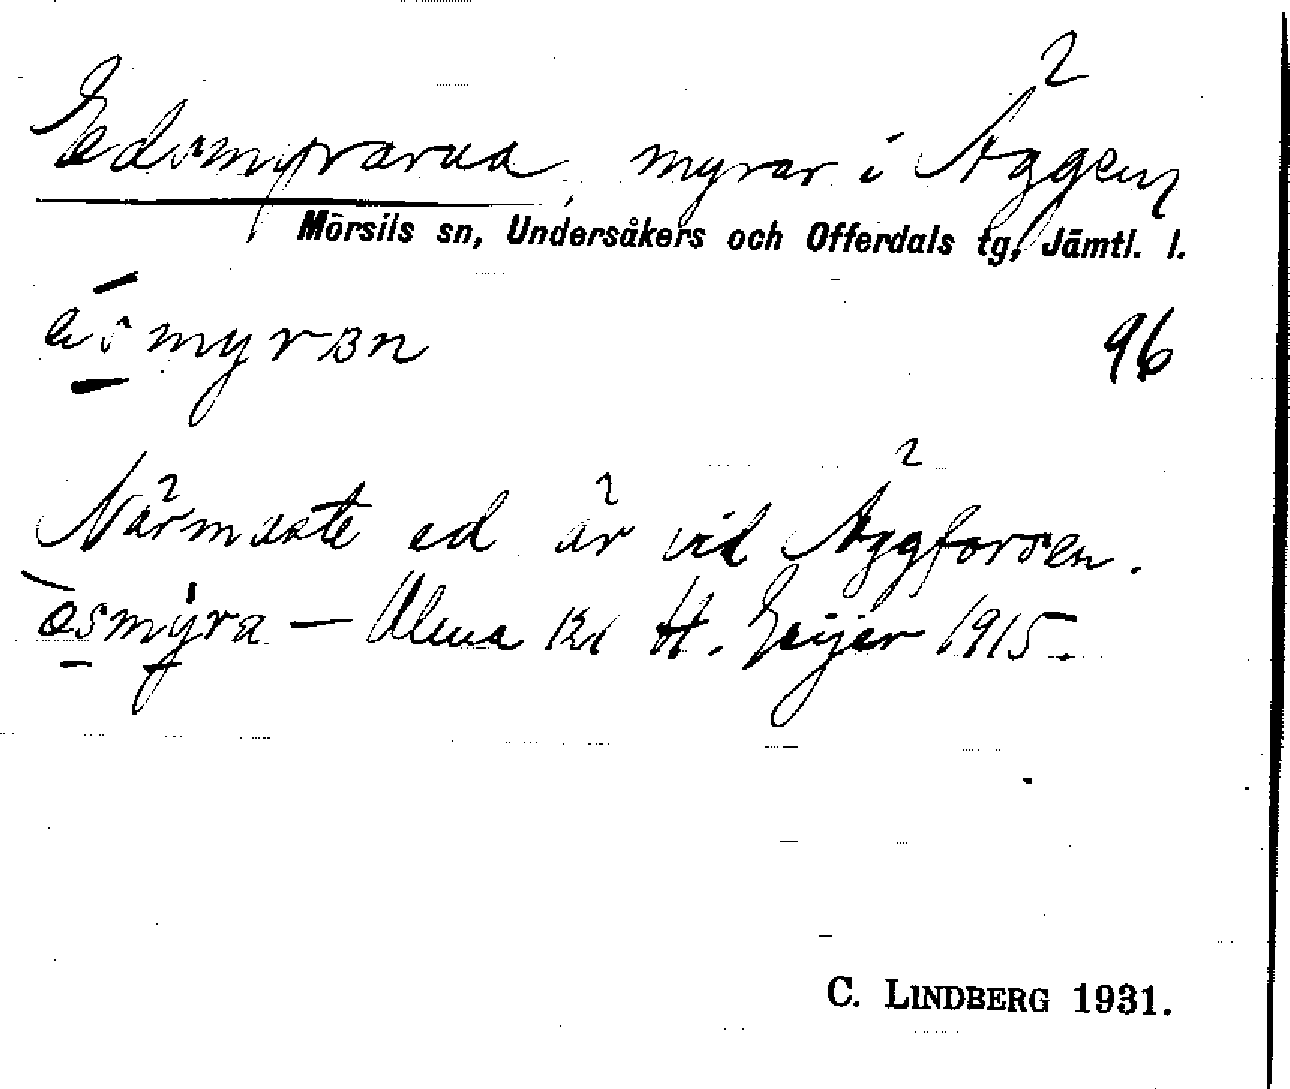 Edsmyrarna, myrar i Äggen
Mörsils sn, Undersåkers och Offerdals tg, Jämtl. l.
smyrɜn
96
Närmaste ed är vid Äggforsen.
ösmyra — H. Geijer 1915.
C. LINDBERG 1931.